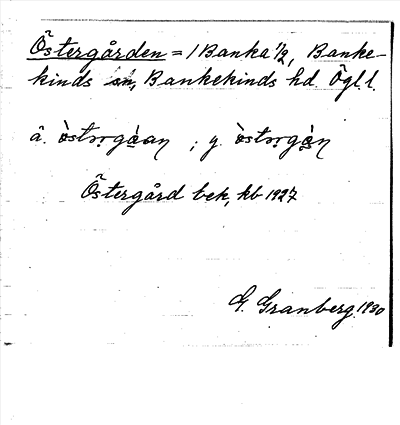 Östergården = 1 Banka 1/2, Banke-
kinds sn, Bankekinds hd. Ögl.l.
ä. ; y.
Östergård bek, kb 1927
G. Granberg 1930